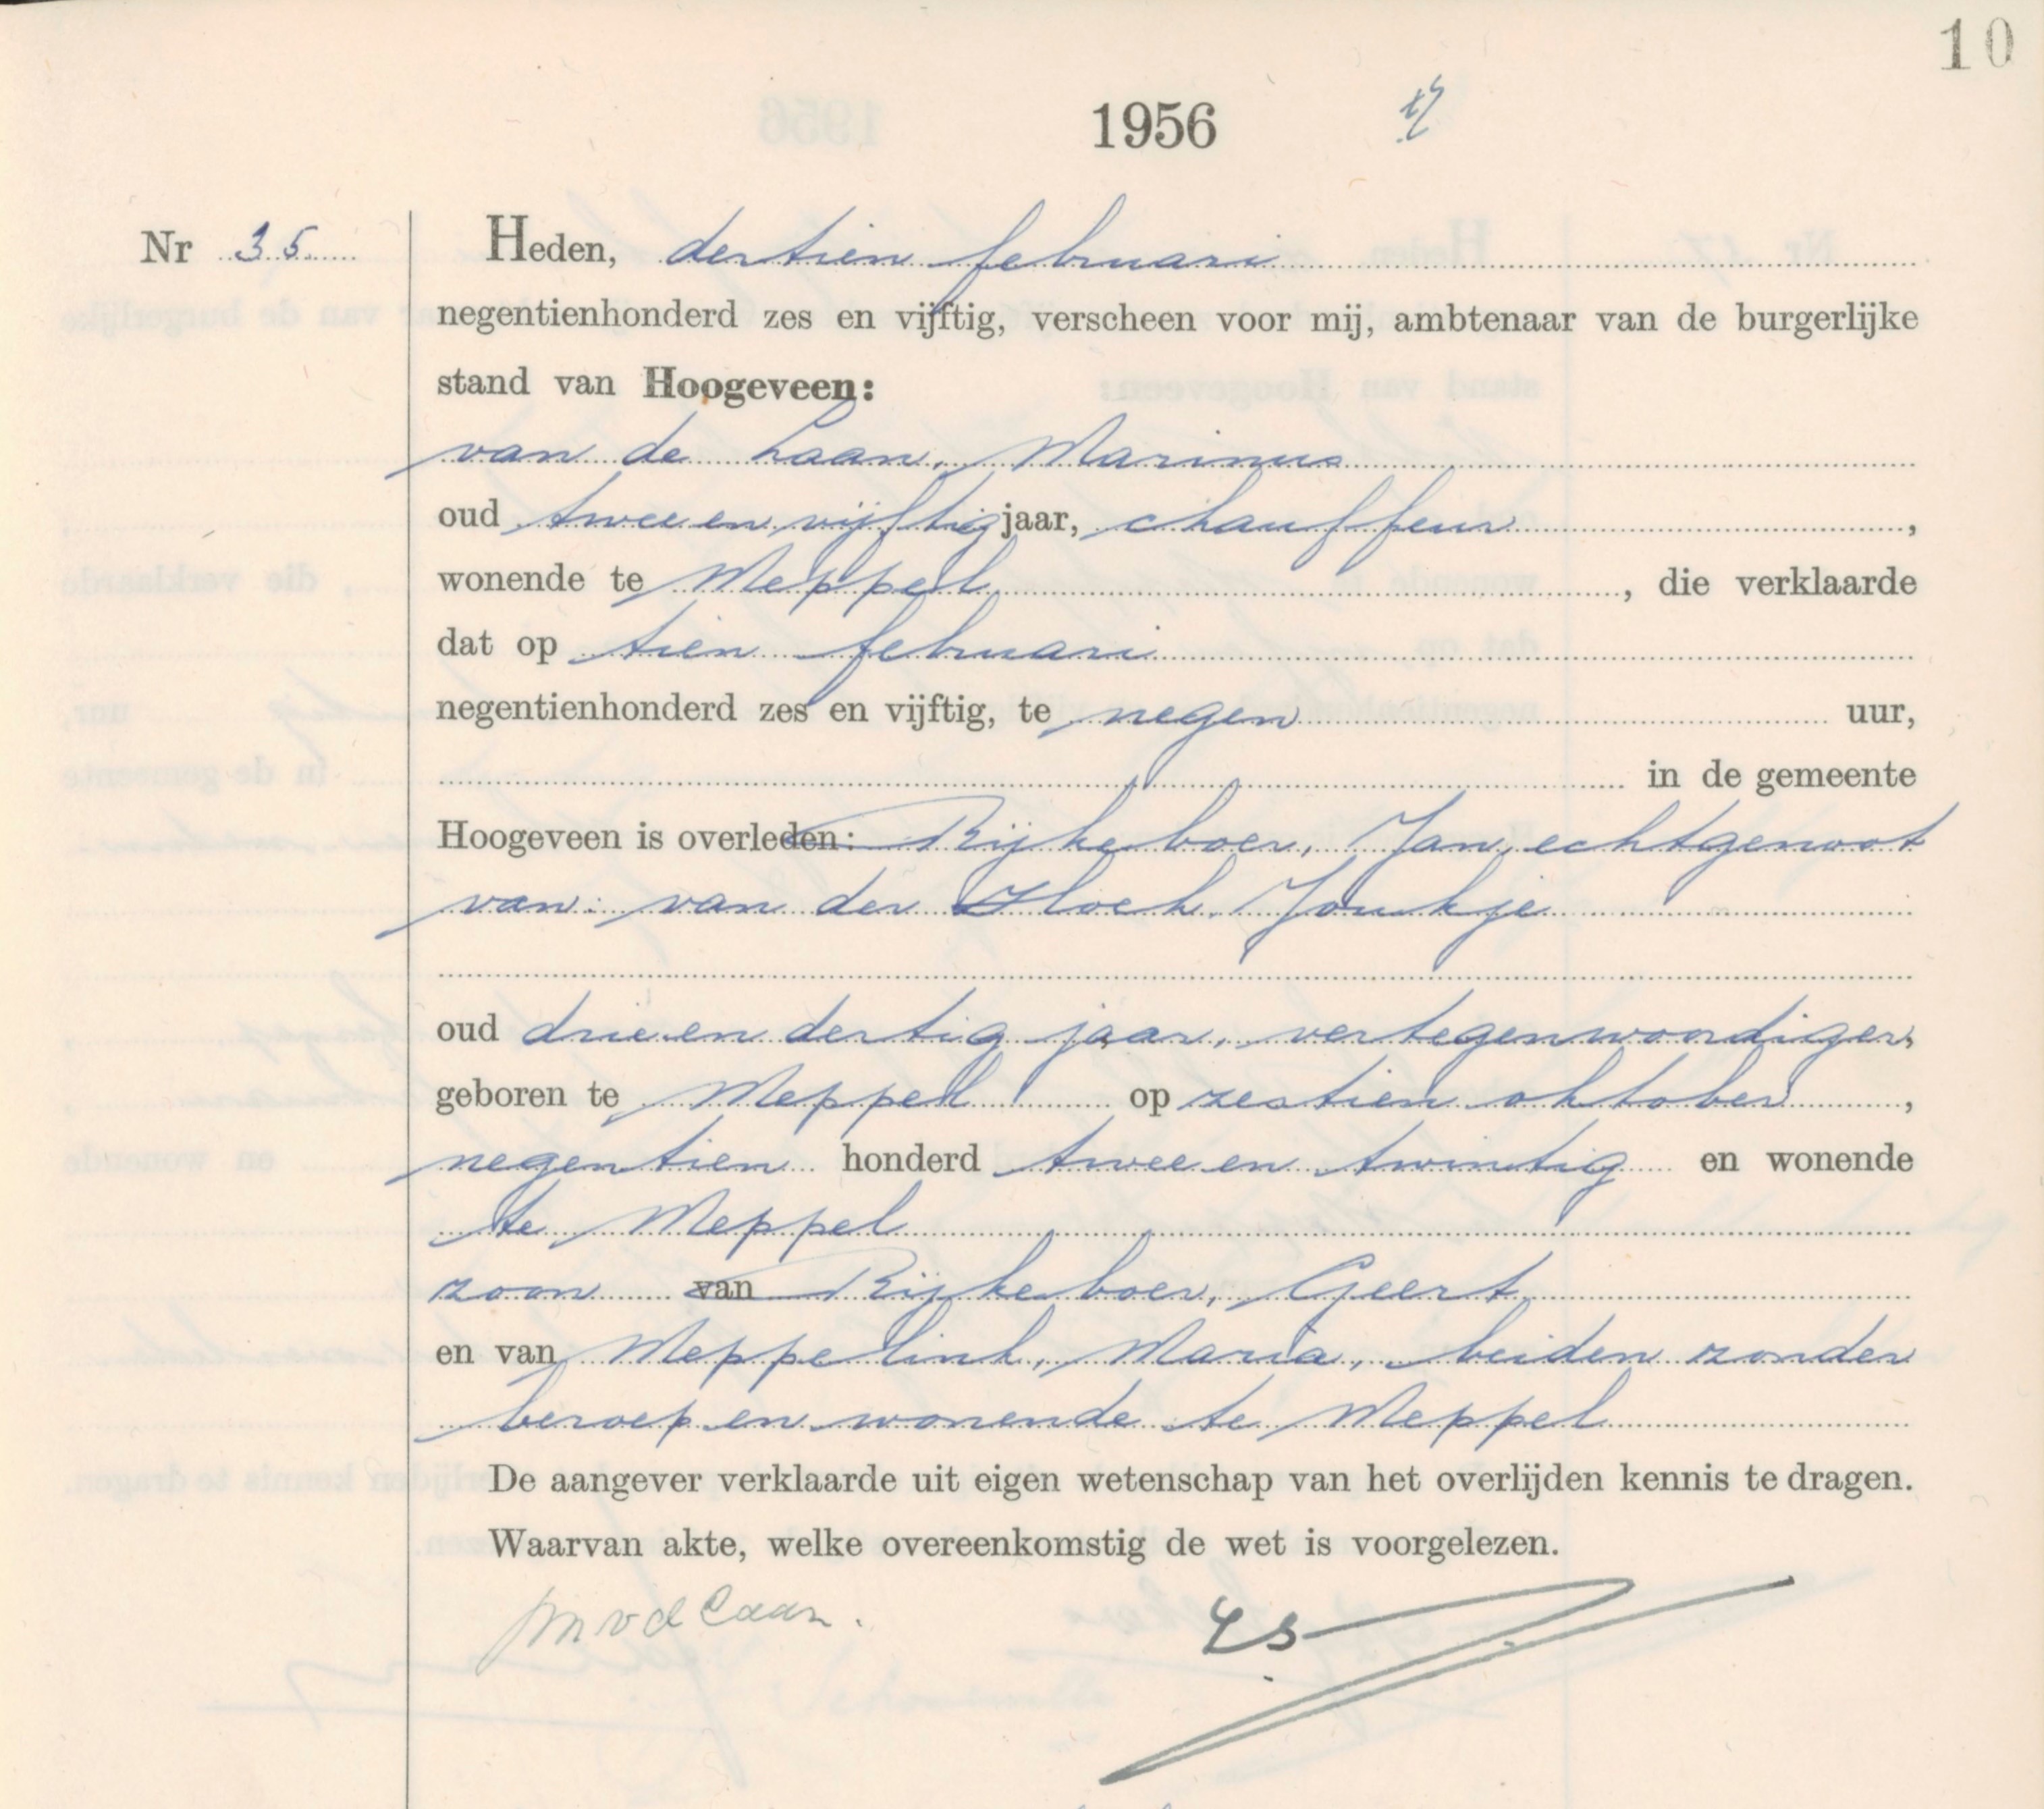 10
1956
Nr 35
Heden, dertien februari
negentienhonderd zes en vijftig, verscheen voor mij, ambtenaar van de burgerlijke
stand van Hoogeveen:
van de Laan, Marinus
oud twee en vijftig jaar, chauffeur,
wonende te Meppel, die verklaarde
dat op tien februari
negentienhonderd zes en vijftig, te negen uur,
in de gemeente
Hoogeveen is overleden: Rijkeboer, Jan, echtgenoot
van: van der Joukje
oud drie en dertig jaar, vertegenwoordiger,
geboren te Meppel op zestien oktober,
negentien honderd twee en twintig en wonende
te Meppel
zoon van Rijkeboer, Geert
en van Meppelink, Maria, beiden zonder
beroep en wonende te Meppel
De aangever verklaarde uit eigen wetenschap van het overlijden kennis te dragen.
Waarvan akte, welke overeenkomstig de wet is voorgelezen.
M v d Laan.